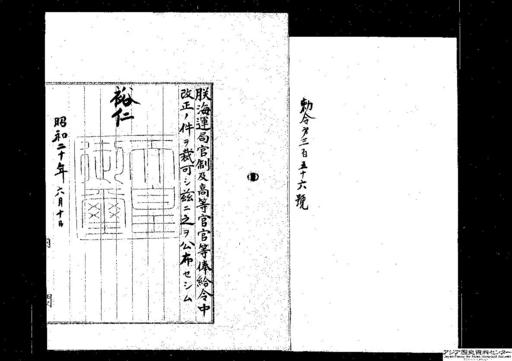 勅令第三百五十六號
朕海運局官制及高等官官等俸給令中
改正ノ件ヲ裁可シ茲ニ之ヲ公布セシム
裕仁
天皇御璽
昭和二十年六月十日
内
閣
アジア歴史資料センター